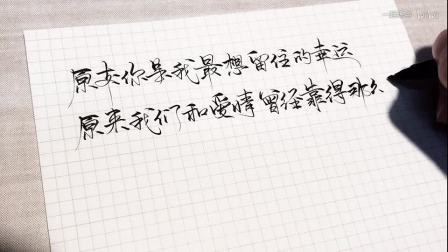 原来你是我最想留住的幸运
原来我们和爱情曾经靠得那么